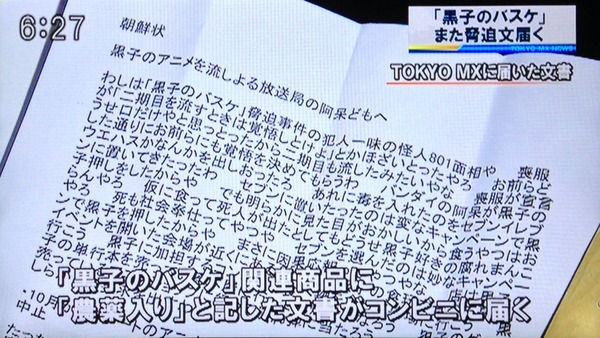 6:27
「黒子のバスケ」
また脅迫文届く
TOKYO MX NEWS
TOKYO MXに届いた文書
朝鮮状
黒子のアニメを流しよる放送局の阿呆どもへ
わしは「黒子のバスケ」脅迫事件の犯人一味の怪人801面相や 喪服
が「二期目を流すときは覚悟しとけよ」とかほざいとったやろ お前らど
うせ口だけやと思っとったから二期目も流したみたいやな 喪服が宣言
した通りにお前らにも覚悟を決めてもらうわ バンダイの阿呆が黒子の
ウエハスかなんかを出しおったろ あれに毒を入れたのをセブンイレブ
ンに置いてきたったわ セブンに置いたったのは変なキャンペーンで黒
子押しをしたからや でも明らかに見た目がおかしいから食うやつはお
らんやろ 仮に食って死人が出たとしてもどうせ黒子好きの腐れまんこ
やろ 死も社会奉仕ってやつや セブンを選んだのは妙なキャンペー
ンで黒子を押したからや まさに因果応報
イベントを開いた会場が近くにあ
行こう 黒子に加担する
子の単行本を売
売って
しら
・10月 トのアニメ
中止
「黒子のバスケ」関連商品に
「農薬入り」と記した文書がコンビニに届く